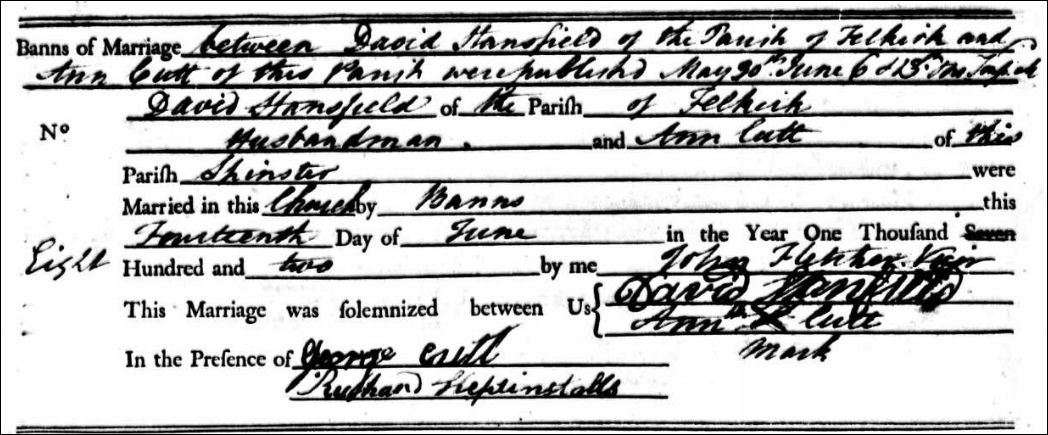 Banns of Marriage between David Stansfield of the Parish of Felkirk and
Ann Cutt of this Parish were published May 30th June 6 & 13th
David Stansfield of the Pariſh of Felkirk
No Husbandman. and Ann Cutt of this
Pariſh Spinster were
Married in this Church by Banns this
Fourteenth Day of June in the Year One Thouſand Seven
Eight Hundred and two by me John Fletcher Vicar
This Marriage was ſolemnized between Us David Stanfield
Ann X Cutt
mark
In the Preſence of George
Richard Heptinstalls